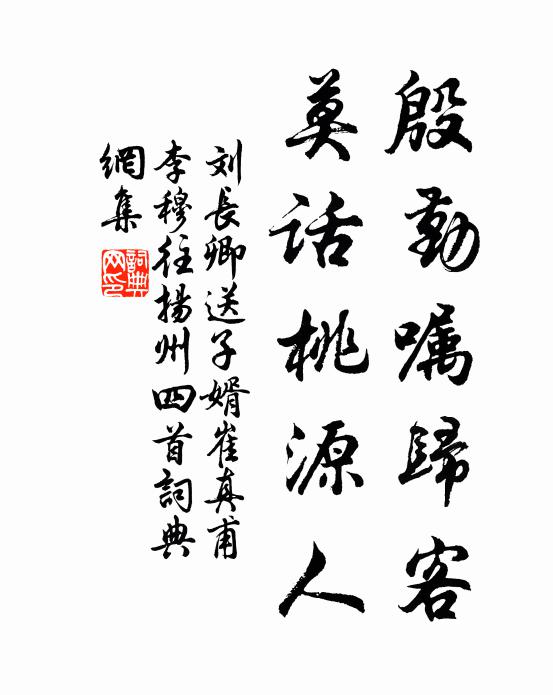 殷勤嘱歸客
莫话桃源人
刘長卿送子婿崔真甫
李穆往揚州四首詞典
網集
詞典
网印